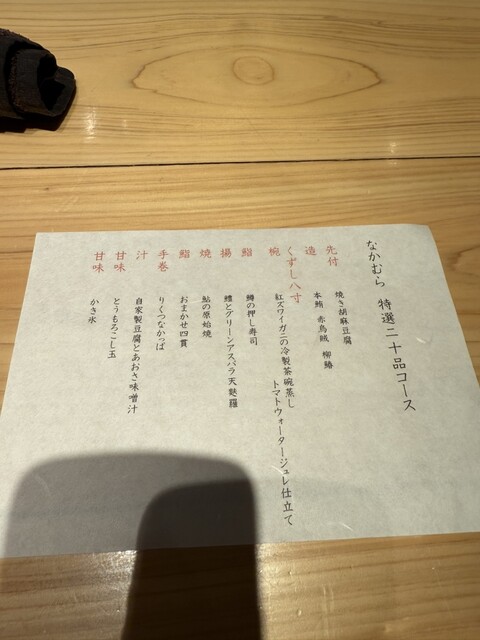 なかむら 特選二十品コース
先付 焼き胡麻豆腐
造 本鮪 赤烏賊 柳鰆
くずし八寸
椀 紅ズワイガニの冷製茶碗蒸し
トマトウォータージュレ仕立て
鮨 鱒の押し寿司
揚 鱧とグリーンアスパラ天麩羅
焼 鮎の原始焼
鮨 おまかせ四貫
手巻 りくつなかっぱ
汁 自家製豆腐とあおさ味噌汁
甘味 とうもろこし玉
甘味 かき氷